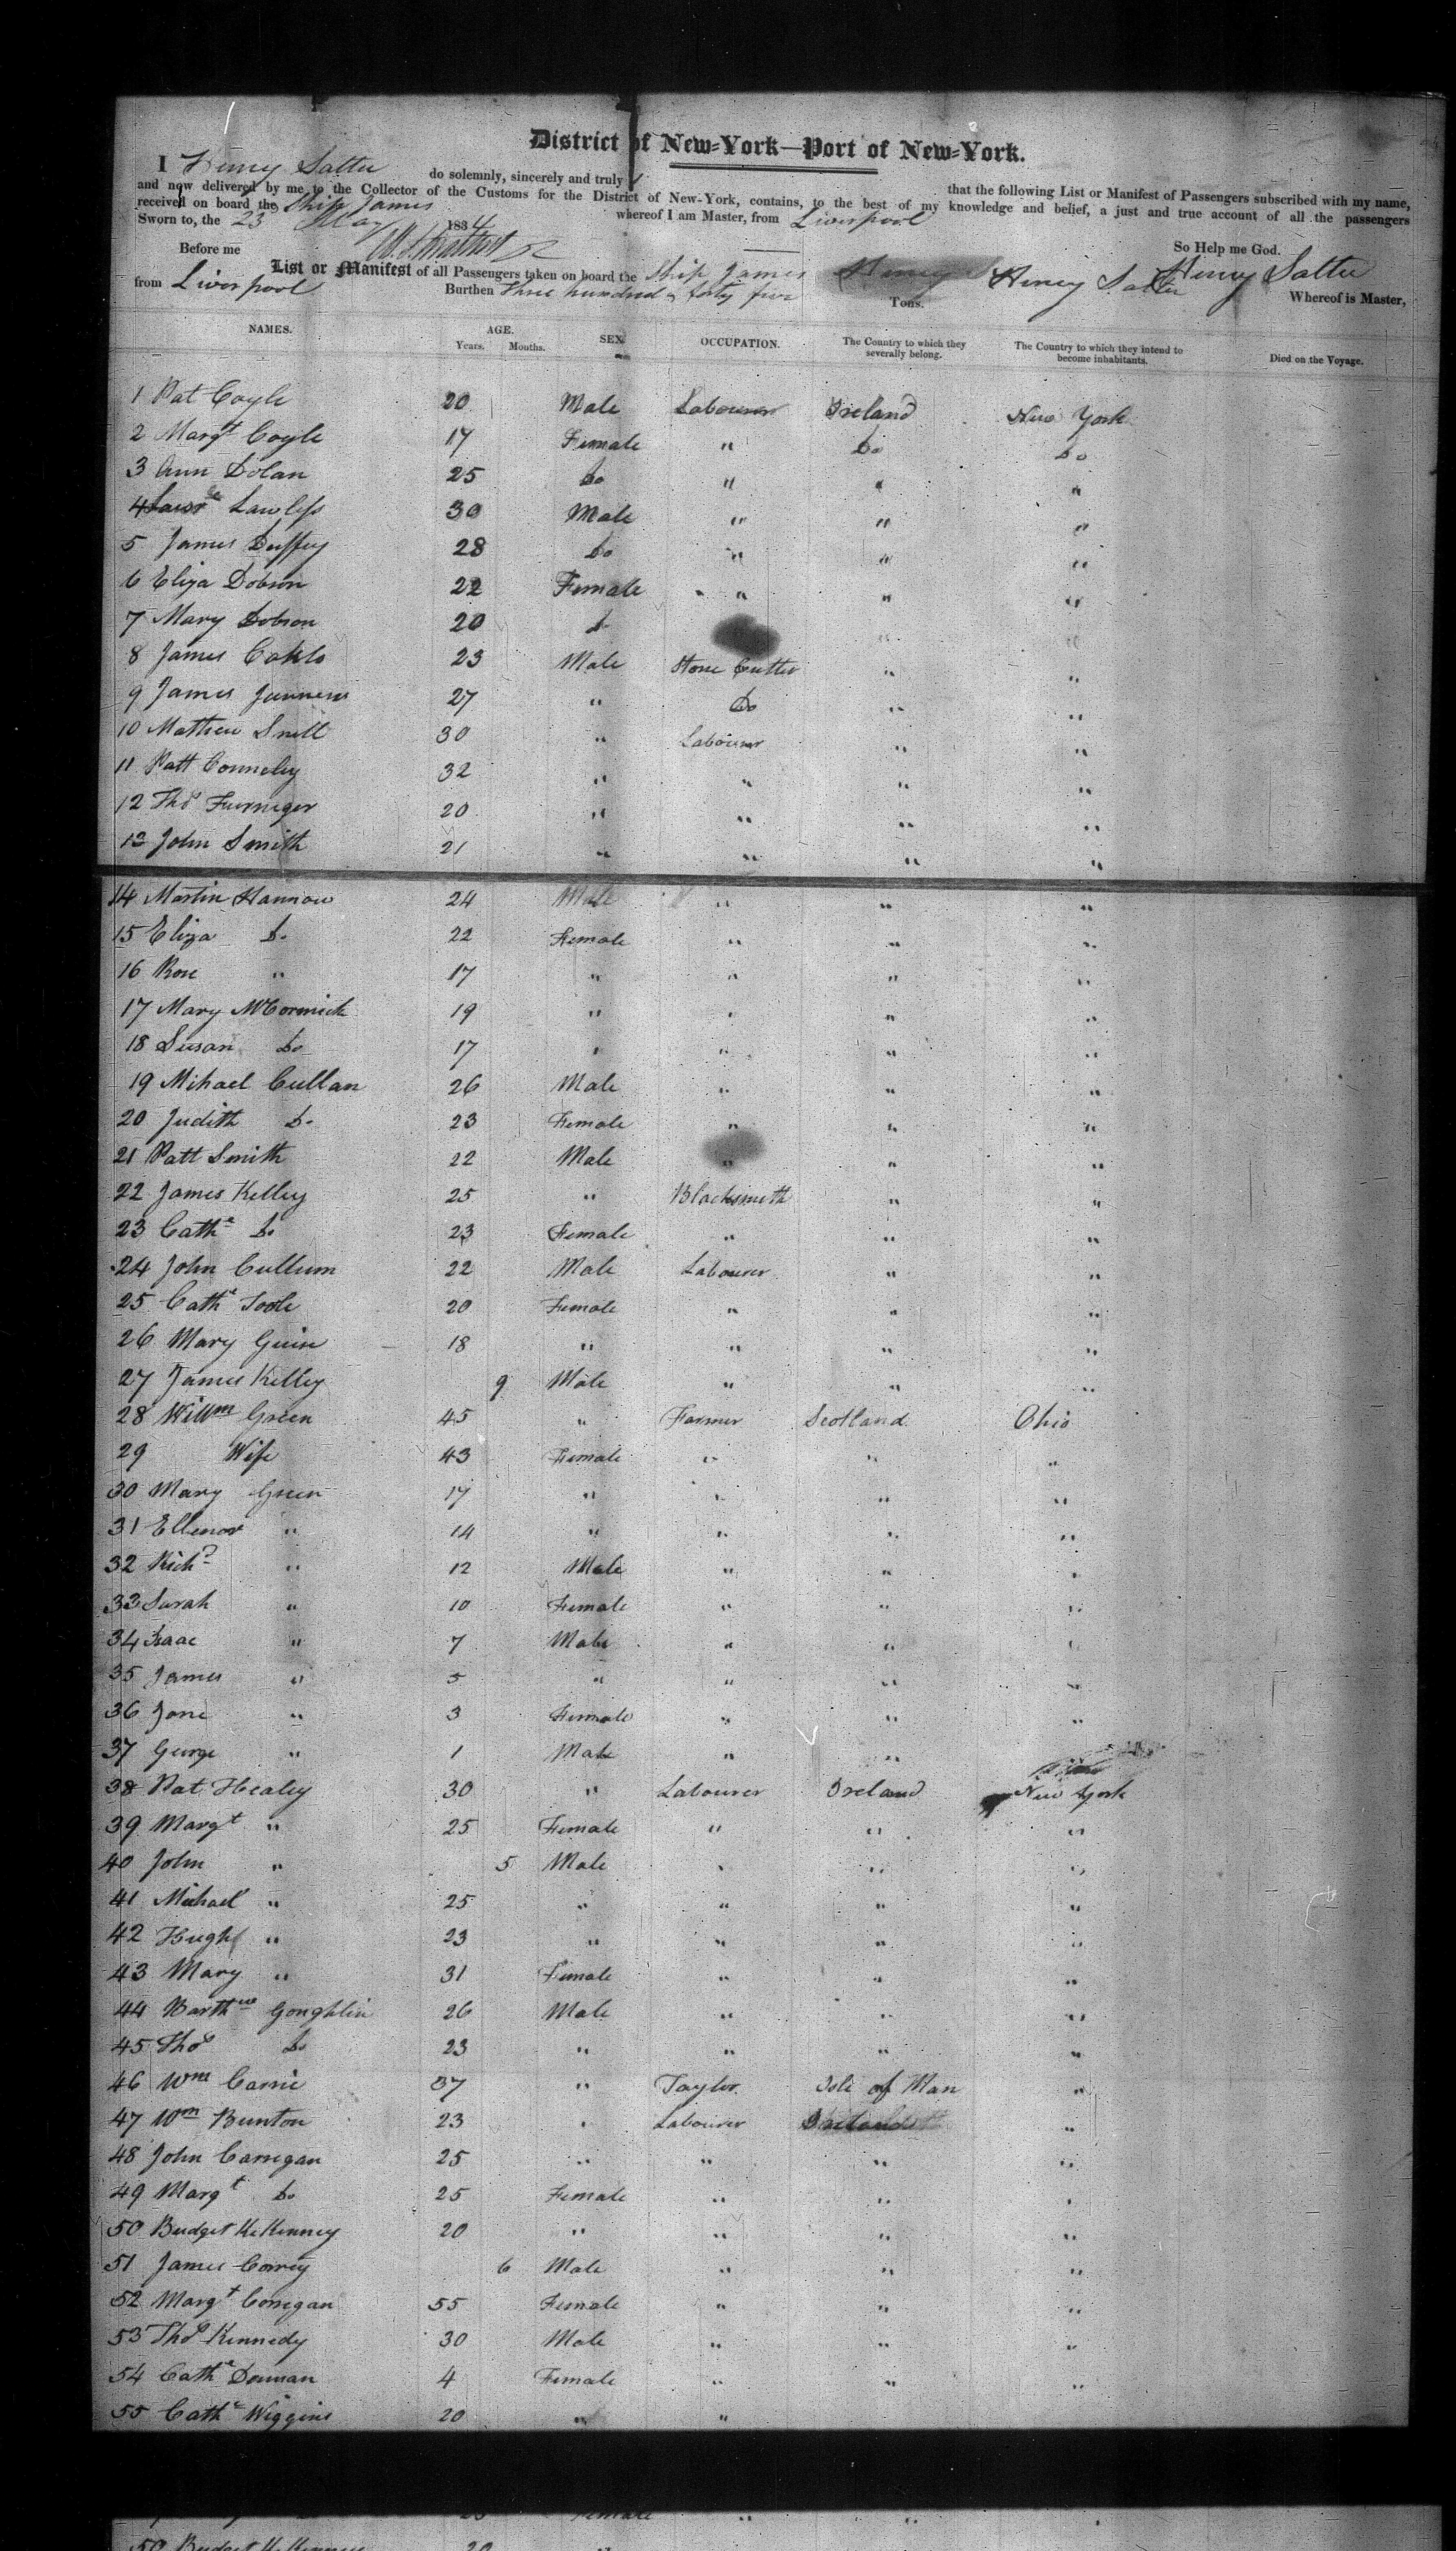 District of New-York—Port of New-York.
I Henry Salter do solemnly, sincerely and truly that the following List or Manifest of Passengers subscribed with my name,
and now delivered by me to the Collector of the Customs for the District of New-York, contains, to the best of my knowledge and belief, a just and true account of all the passengers
received on board the Ship James whereof I am Master, from Liverpool
Sworn to, the 23 May 1834 So Help me God.
Before me Henry Salter
List or Manifest of all Passengers taken on board the Ship James Henry Salter Whereof is Master,
from Liverpool Burthen Three hundred & forty five Tons.
NAMES. AGE. SEX. OCCUPATION. The Country to which they severally belong. The Country to which they intend to become inhabitants. Died on the Voyage.
Years. Months.
1 Pat Coyle 20 Male Labourer Ireland New York
2 Margt Coyle 17 Female " Do Do
3 Ann Dolan 25 Do " " "
4 Lawless 30 Male " " "
5 James Duffey 28 Do " " "
6 Eliza Dobson 22 Female " " "
7 Mary Dobson 20 Do " "
8 James 23 Male Stone Cutter " "
9 James 27 " Do " "
10 Mathew Snell 30 " Labourer " "
11 Patt Conneley 32 " " " "
12 Thos Furneger 20 " " " "
13 John Smith 21 " " " "
14 Martin Hannow 24 Male " " "
15 Eliza Do 22 Female " " "
16 Rose " 17 " " " "
17 Mary McCormick 19 " " " "
18 Susan Do 17 " " " "
19 Mihael Cullan 26 Male " " "
20 Judith Do 23 Female " " "
21 Patt Smith 22 Male " " "
22 James Kelley 25 " Blacksmith " "
23 Cathe Do 23 Female " " "
24 John Cullum 22 Male Labourer " "
25 Cathe Toole 20 Female " " "
26 Mary Guin 18 " " " "
27 James Kelley 9 Male " " "
28 Willm Green 45 " Farmer Scotland Ohio
29 Wife 43 Female " " "
30 Mary Green 17 " " " "
31 Ellenor " 14 " " " "
32 Richd " 12 Male " " "
33 Sarah " 10 Female " " "
34 Isaac " 7 Male " " "
35 James " 5 " " " "
36 Jane " 3 Female " " "
37 George " 1 Male " "
38 Pat Healey 30 " Labourer Ireland New York
39 Margt " 25 Female " " "
40 John " 5 Male " " "
41 Michael " 25 " " " "
42 Hugh " 23 " " " "
43 Mary " 31 Female " " "
44 Barthw Goughlin 26 Male " " "
45 Thos Do 23 " " " "
46 Wm Carrie 37 " Taylor Isle of Man "
47 Wm Bunton 23 " Labourer Ireland "
48 John Carregan 25 " " " "
49 Margt Do 25 Female " " "
50 Budget McKenney 20 " " " "
51 James 6 Male " " "
52 Margt Corregan 55 Female " " "
53 Thos Kennedy 30 Male " " "
54 Cathe 4 Female " " "
55 Cathe Wiggins 20 " "
50 Budget McKenney 20